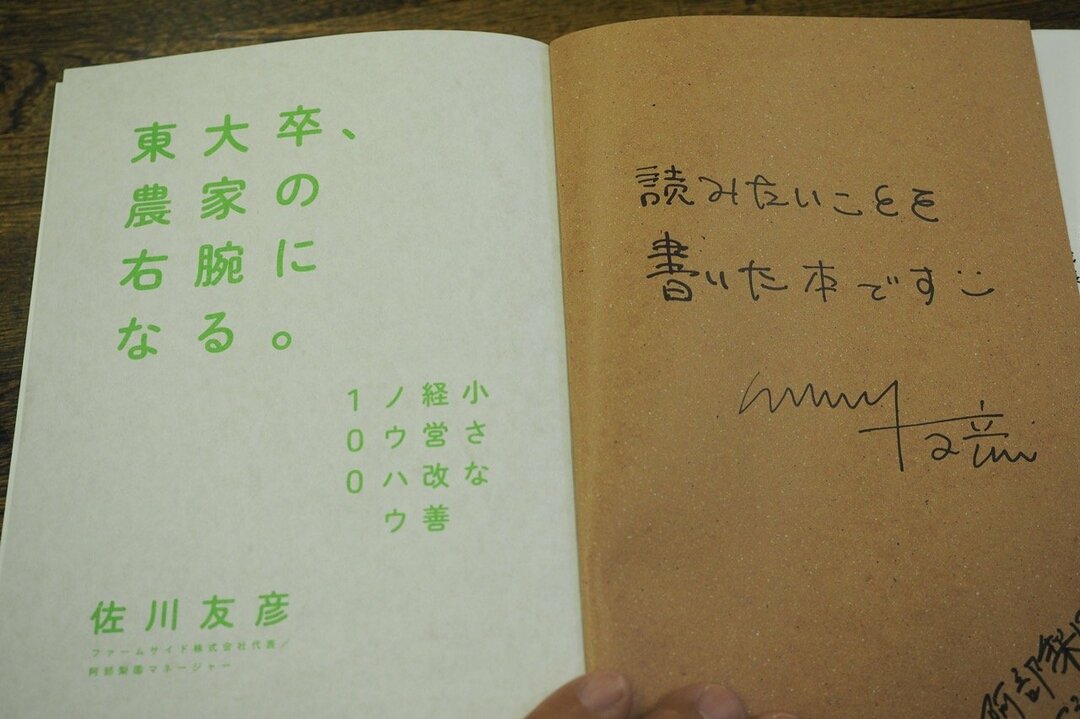 東大卒、
農家の
右腕に
なる。
小さな
経営改善
ノウハウ
100
佐川友彦
ファームサイド株式会社代表／
阿部梨園マネージャー
読みたいことを
書いた本です
阿部梨